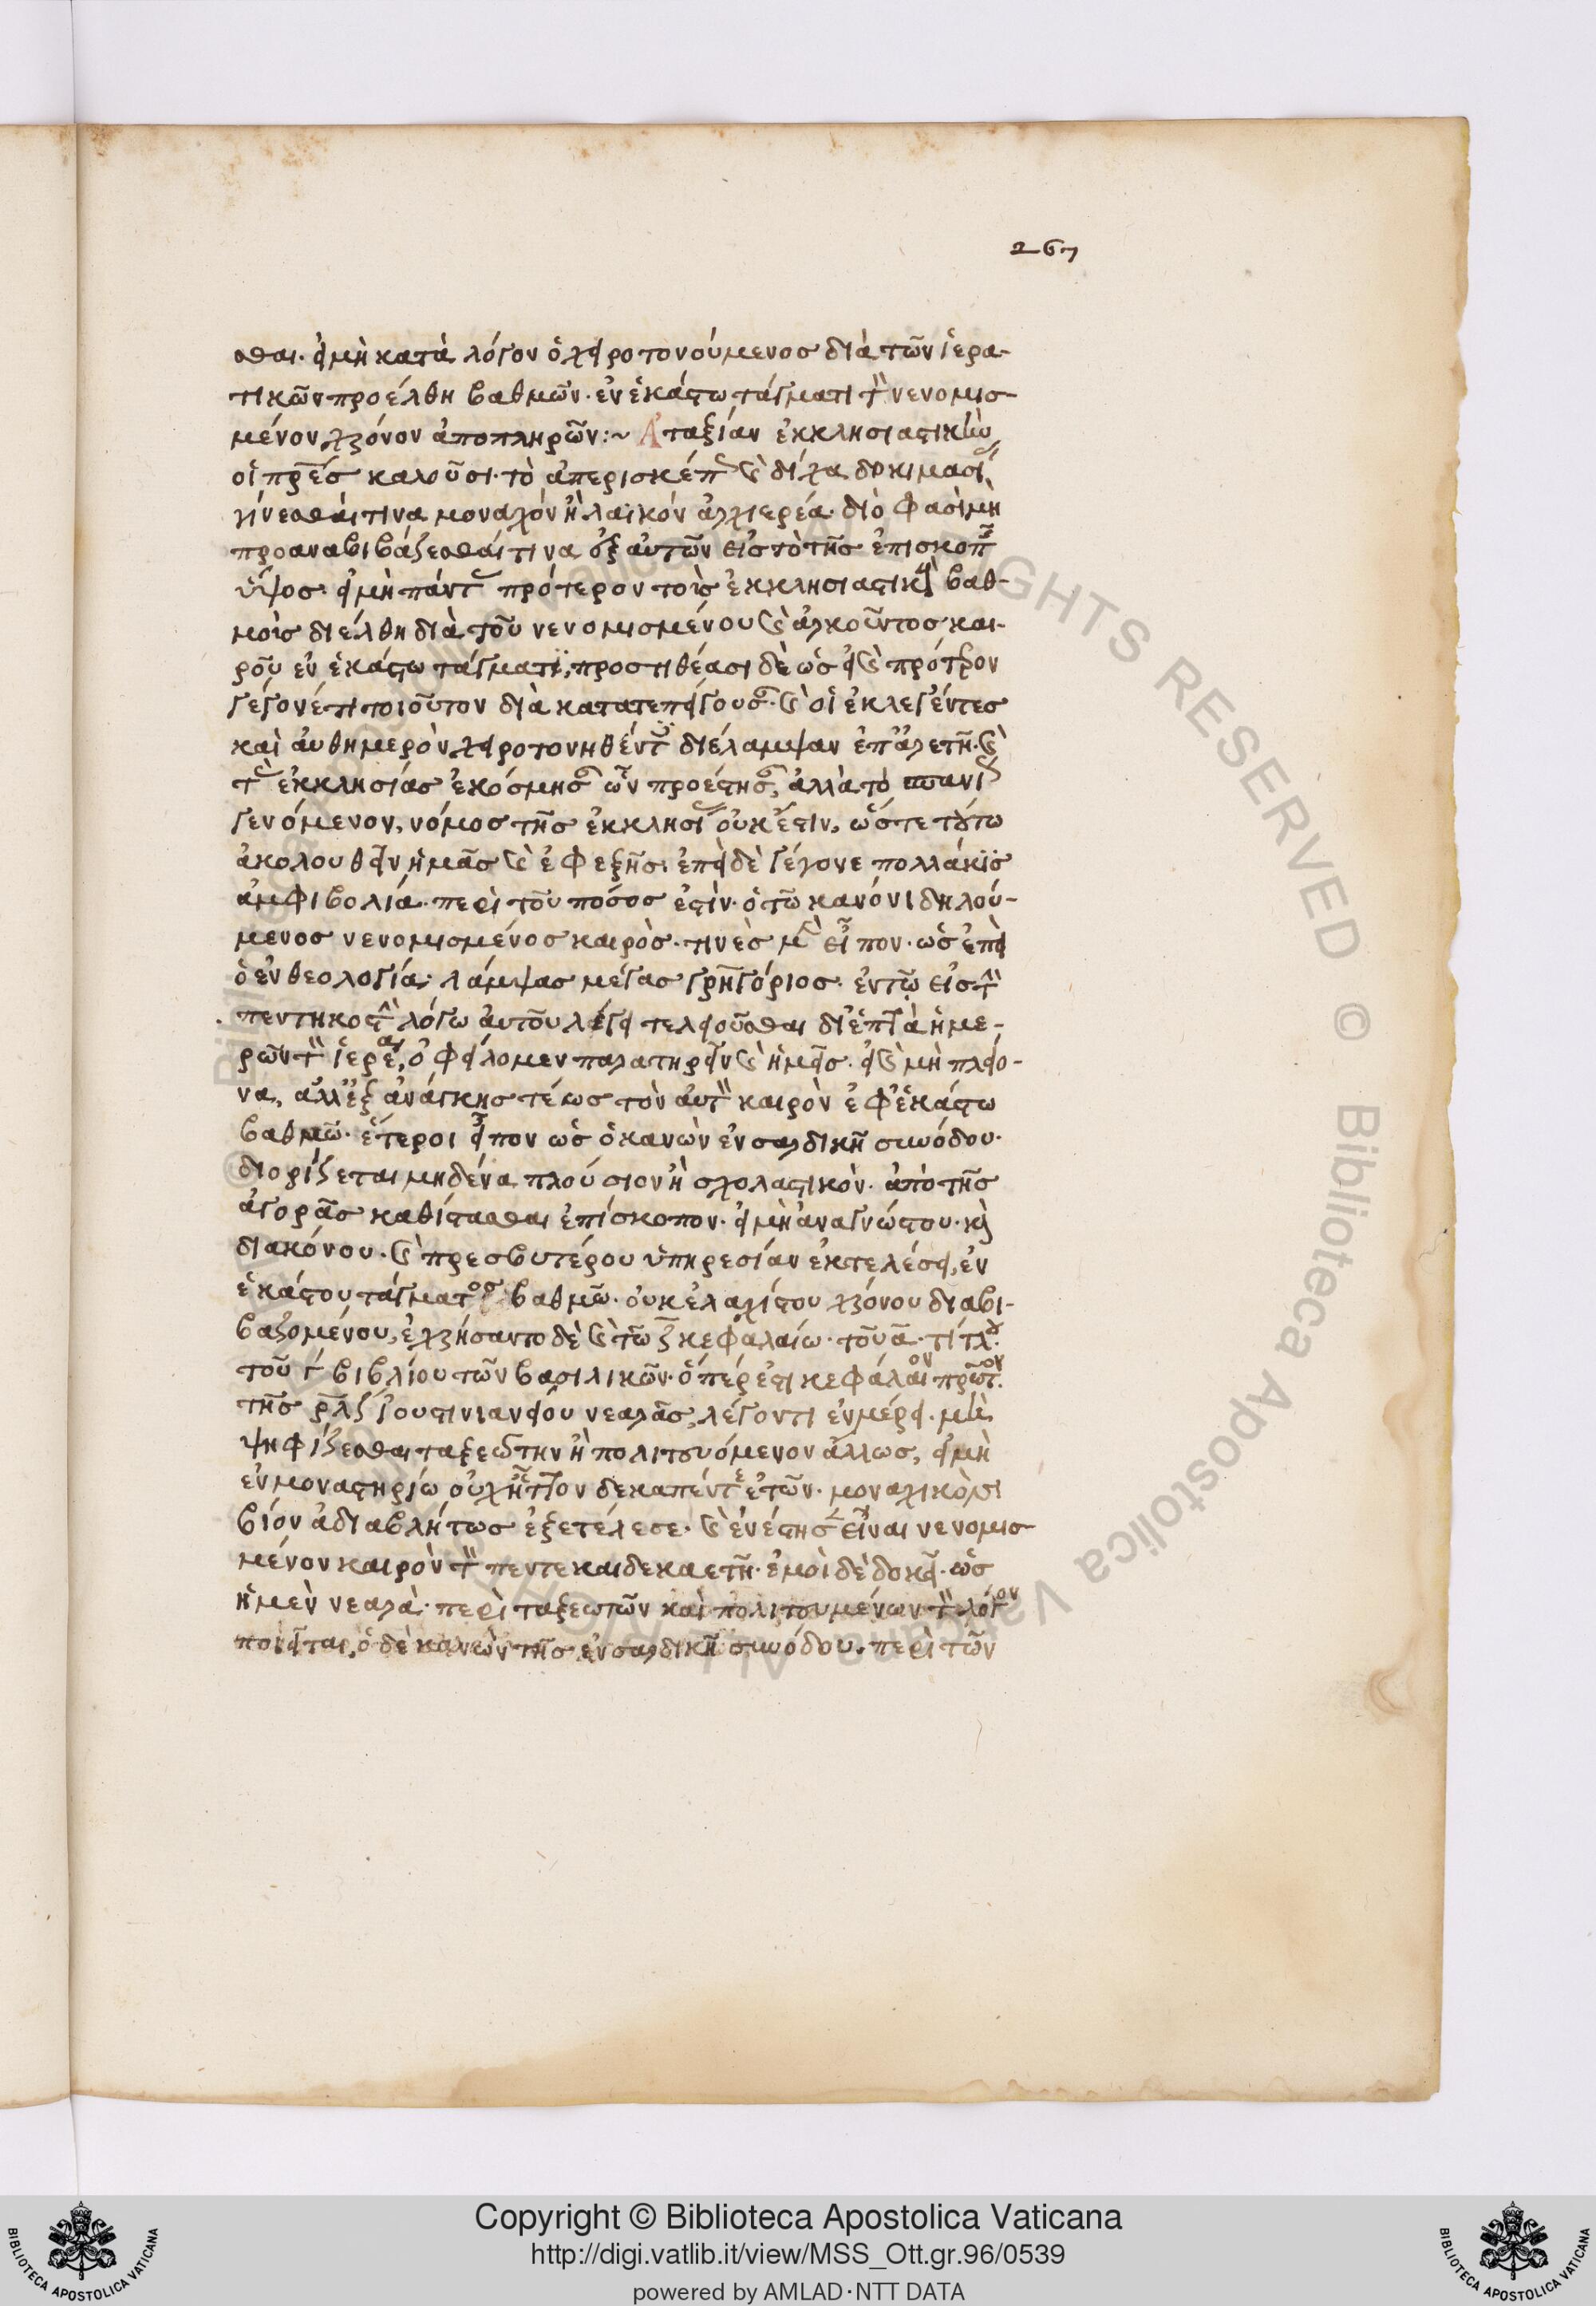 267
σθαι· εἰ μὴ κατὰ λόγον ὁ χειροτονούμενος διὰ τῶν ἱερα-
τικῶν προέλθη βαθμῶν· ἐν ἑκάστω τάγματι τὸν νενομισ-
μένον χρόνον ἀποπληρῶν:~ Ἀταξίαν ἐκκλησιαστικὴν
οἱ πρ̅ε̅ς καλοῦσι· τὸ ἀπερισκέπτως καὶ δίχα δοκιμασίας
γίνεσθαί τινα μοναχὸν ἢ λαϊκὸν ἀρχιερέα· διό φασι μὴ
προαναβιβάζεσθαί τινα ἐξ αὐτῶν εἰς τὸ τῆς ἐπισκοπῆς
ὕψος· εἰ μὴ πάντως πρότερον τοῖς ἐκκλησιαστικοῖς βαθ-
μοῖς διέλθη διὰ τοῦ νενομισμένου καὶ ἀρκοῦντος και-
ροῦ ἐν ἑκάστω τάγματι, προστιθέασι δὲ ὡς εἰ καὶ πρότερον
γέγονέ τι τοιοῦτον διὰ κατατεπείγουσαν· καὶ οἱ ἐκλεγέντες
καὶ αὐθημερὸν χειροτονηθέντες διέλαμψαν ἐπ' ἀρετῆ· καὶ
τὰς ἐκκλησίας ἐκόσμησαν ὧν προέστησαν, ἀλλὰ τὸ σπανίως
γενόμενον, νόμος τῆς ἐκκλησίας οὐκ ἔστιν, ὥστε τούτω
ἀκολουθεῖν ἡμᾶς καὶ ἐφεξῆς· ἐπεὶ δὲ γέγονε πολλάκις
ἀμφιβολία· περὶ τοῦ πόσος ἐστὶν· ὁ τῶ κανόνι δηλού-
μενος νενομισμένος καιρὸς· τινὲς μὲν εἶπον· ὡς ἐπεὶ
ὁ ἐν θεολογία· λάμψας μέγας γρηγόριος· ἐν τῷ εἰς τὴν
πεντηκοστὴν λόγω αὐτοῦ λέγει τελειοῦσθαι δι' ἑπτὰ ἡμε-
ρῶν τὸν ἱερέα, ὀφείλομεν παρατηρεῖν καὶ ἡμεῖς· εἰ καὶ μὴ πλείο-
να, ἀλλ' ἐξ ἀνάγκης τέως τὸν αὐτὸν καιρὸν ἐφ' ἑκάστω
βαθμῶ· ἕτεροι εἶπον ὡς ὁ κανὼν ἐν σαρδικῆ συνόδου·
διορίζεται μηδένα πλούσιον ἢ σχολαστικὸν· ἀπὸ τῆς
ἀγορᾶς καθίστασθαι ἐπίσκοπον· εἰ μὴ ἀναγνώστου· καὶ
διακόνου· καὶ πρεσβυτέρου ὑπηρεσίαν ἐκτελέσει, ἐν
ἑκάστου τάγματος βαθμῶ· οὐκ ἐλαχίστου χρόνου διαβι-
βαζομένου, ἐχρήσαντο δὲ καὶ τῶ ζ̅ κεφαλαίω· τοῦ α̅· τίτλου
τοῦ γ̅ βιβλίου τῶν βασιλικῶν· ὅπέρ ἐστι κεφάλαιον πρῶτον
τῆς ρ̅λ̅ζ̅ ἰουστινιανείου νεαρᾶς, λέγοντι ἐν μέρει· μὴ
ψηφίζεσθαι ταξεώτην ἢ πολιτευόμενον ἄλλως, εἰ μὴ
ἐν μοναστηρίω οὐχ ἧττον δεκαπέντε ἐτῶν· μοναχικὸν
βίον ἀδιαβλήτως ἐξετέλεσε· καὶ ἐνέστησαν εἶναι νενομισ
μένον καιρὸν τὸν πεντεκαιδεκαετῆ· ἐμοὶ δὲ δοκεῖ· ὡς
ἡ μὲν νεαρὰ· περὶ ταξεωτῶν καὶ πολιτευομένων τὸν λόγον
ποιεῖται, ὁ δὲ κανὼν τῆς ἐν σαρδικῆ συνόδου· περὶ τῶν
Copyright © Biblioteca Apostolica Vaticana
http://digi.vatlib.it/view/MSS_Ott.gr.96/0539
powered by AMLAD·NTT DATA